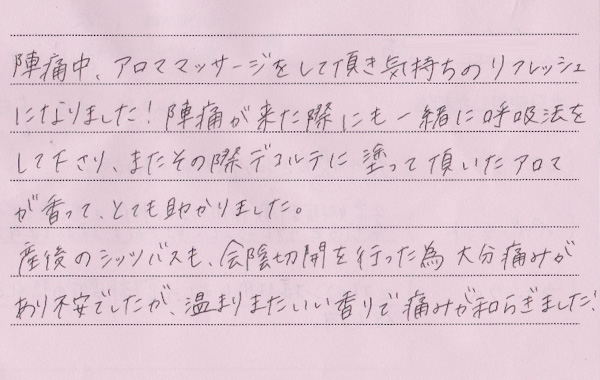 陣痛中、アロママッサージをして頂き気持ちのリフレッシュ
になりました！陣痛が来た際にも一緒に呼吸法を
して下さり、またその際デコルテに塗って頂いたアロマ
が香って、とても助かりました。
産後のシッツバスも、会陰切開を行った為大分痛みが
あり不安でしたが、温まりまたいい香りで痛みが和らぎました！